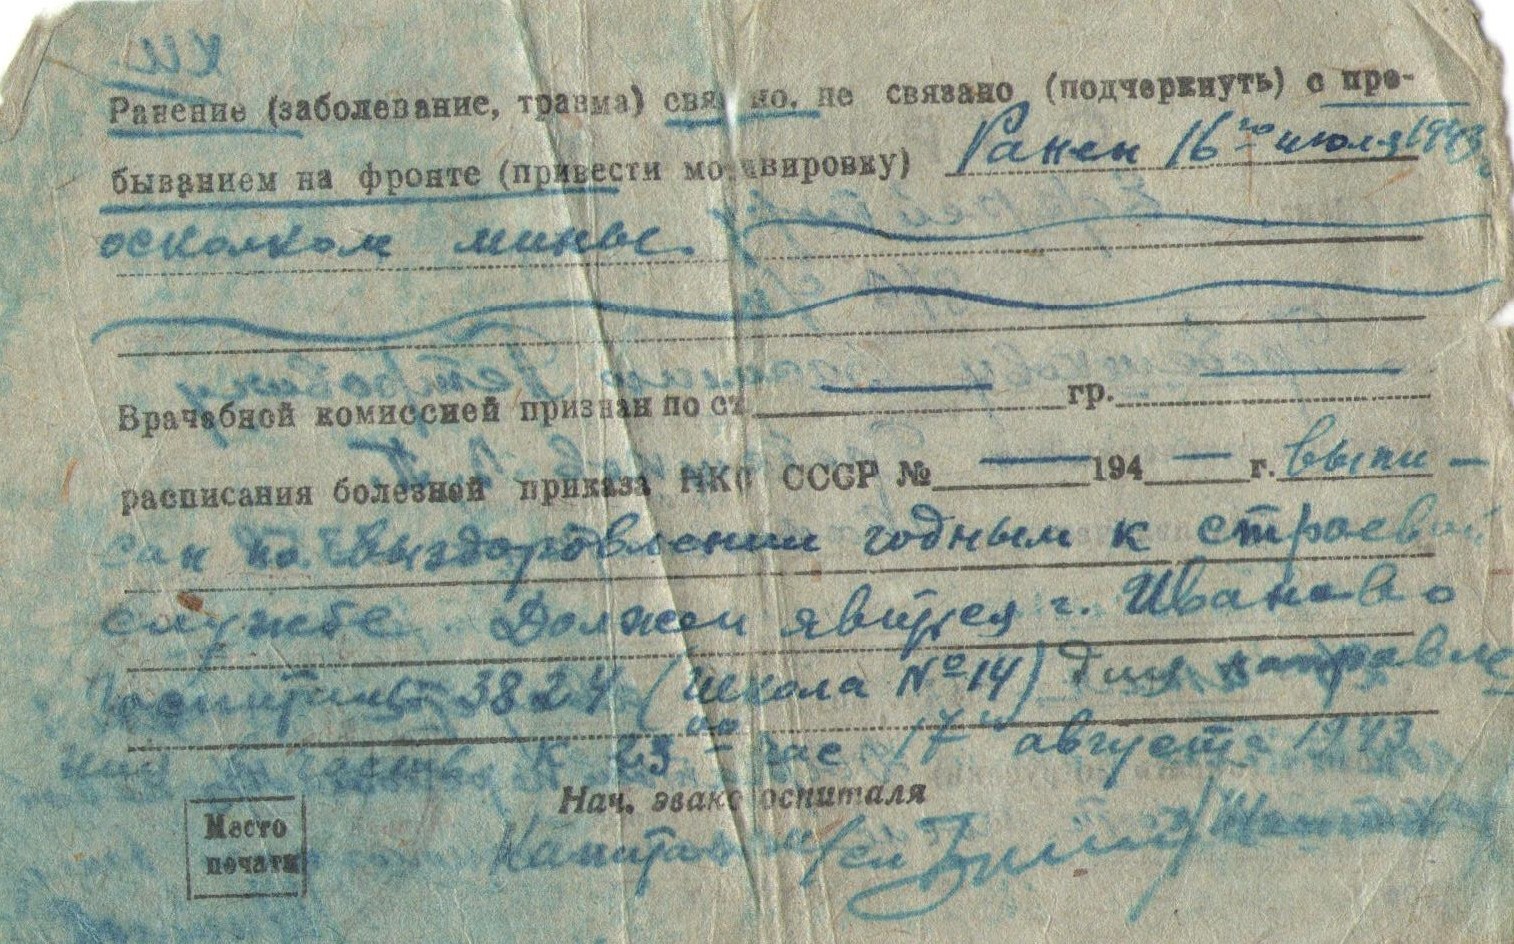 Ранение (заболевание, травма) связано, не связано (подчеркнуть) с пре-
быванием на фронте (привести мотивировку) Ранен 16го июля 1943 г.
осколком мины.
Врачебной комиссией признан по ст. — гр. —
расписания болезней приказа НКО СССР № — 194 — г. выпи-
сан по выздоровлении годным к строевой
службе. Должен явится г. Иваново
госпиталь 3824 (школа №14) для направле
ния в часть к 23 00 час 17 августа 1943
Нач. эвакогоспиталя
Капитан м/сл
Место
печати